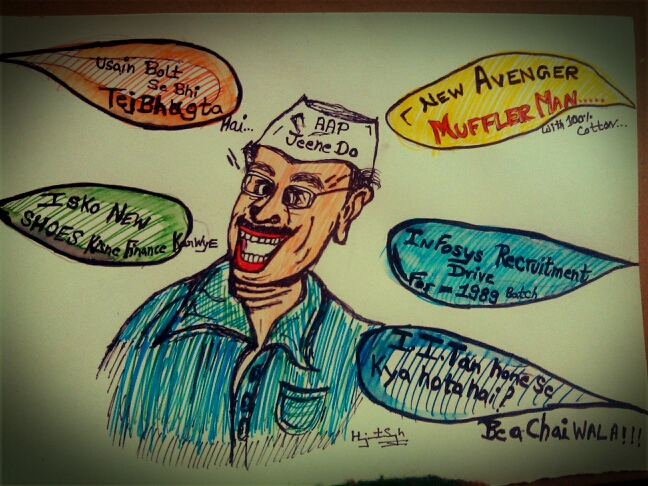 Usain Bolt
Se Bhi
Tej Bhagta
Hai...
AAP
Jeene Do
NEW AVENGER
MUFFLER MAN.....
with 100%
Cotton...
Isko New
SHOES Kisne Finance KarWyE
INfosys Recruitment
Drive
For = 1989 Batch
I.I.Tan hone se
Kya hota hai?
Be a Chai WALA!!!